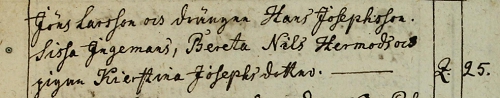 Jöns Larsson och drängen Hans Josephsson.
Sissa Ingemans, Bereta Nils Hermods och
pigan Kierstina Josephs dotter. 2. 25.